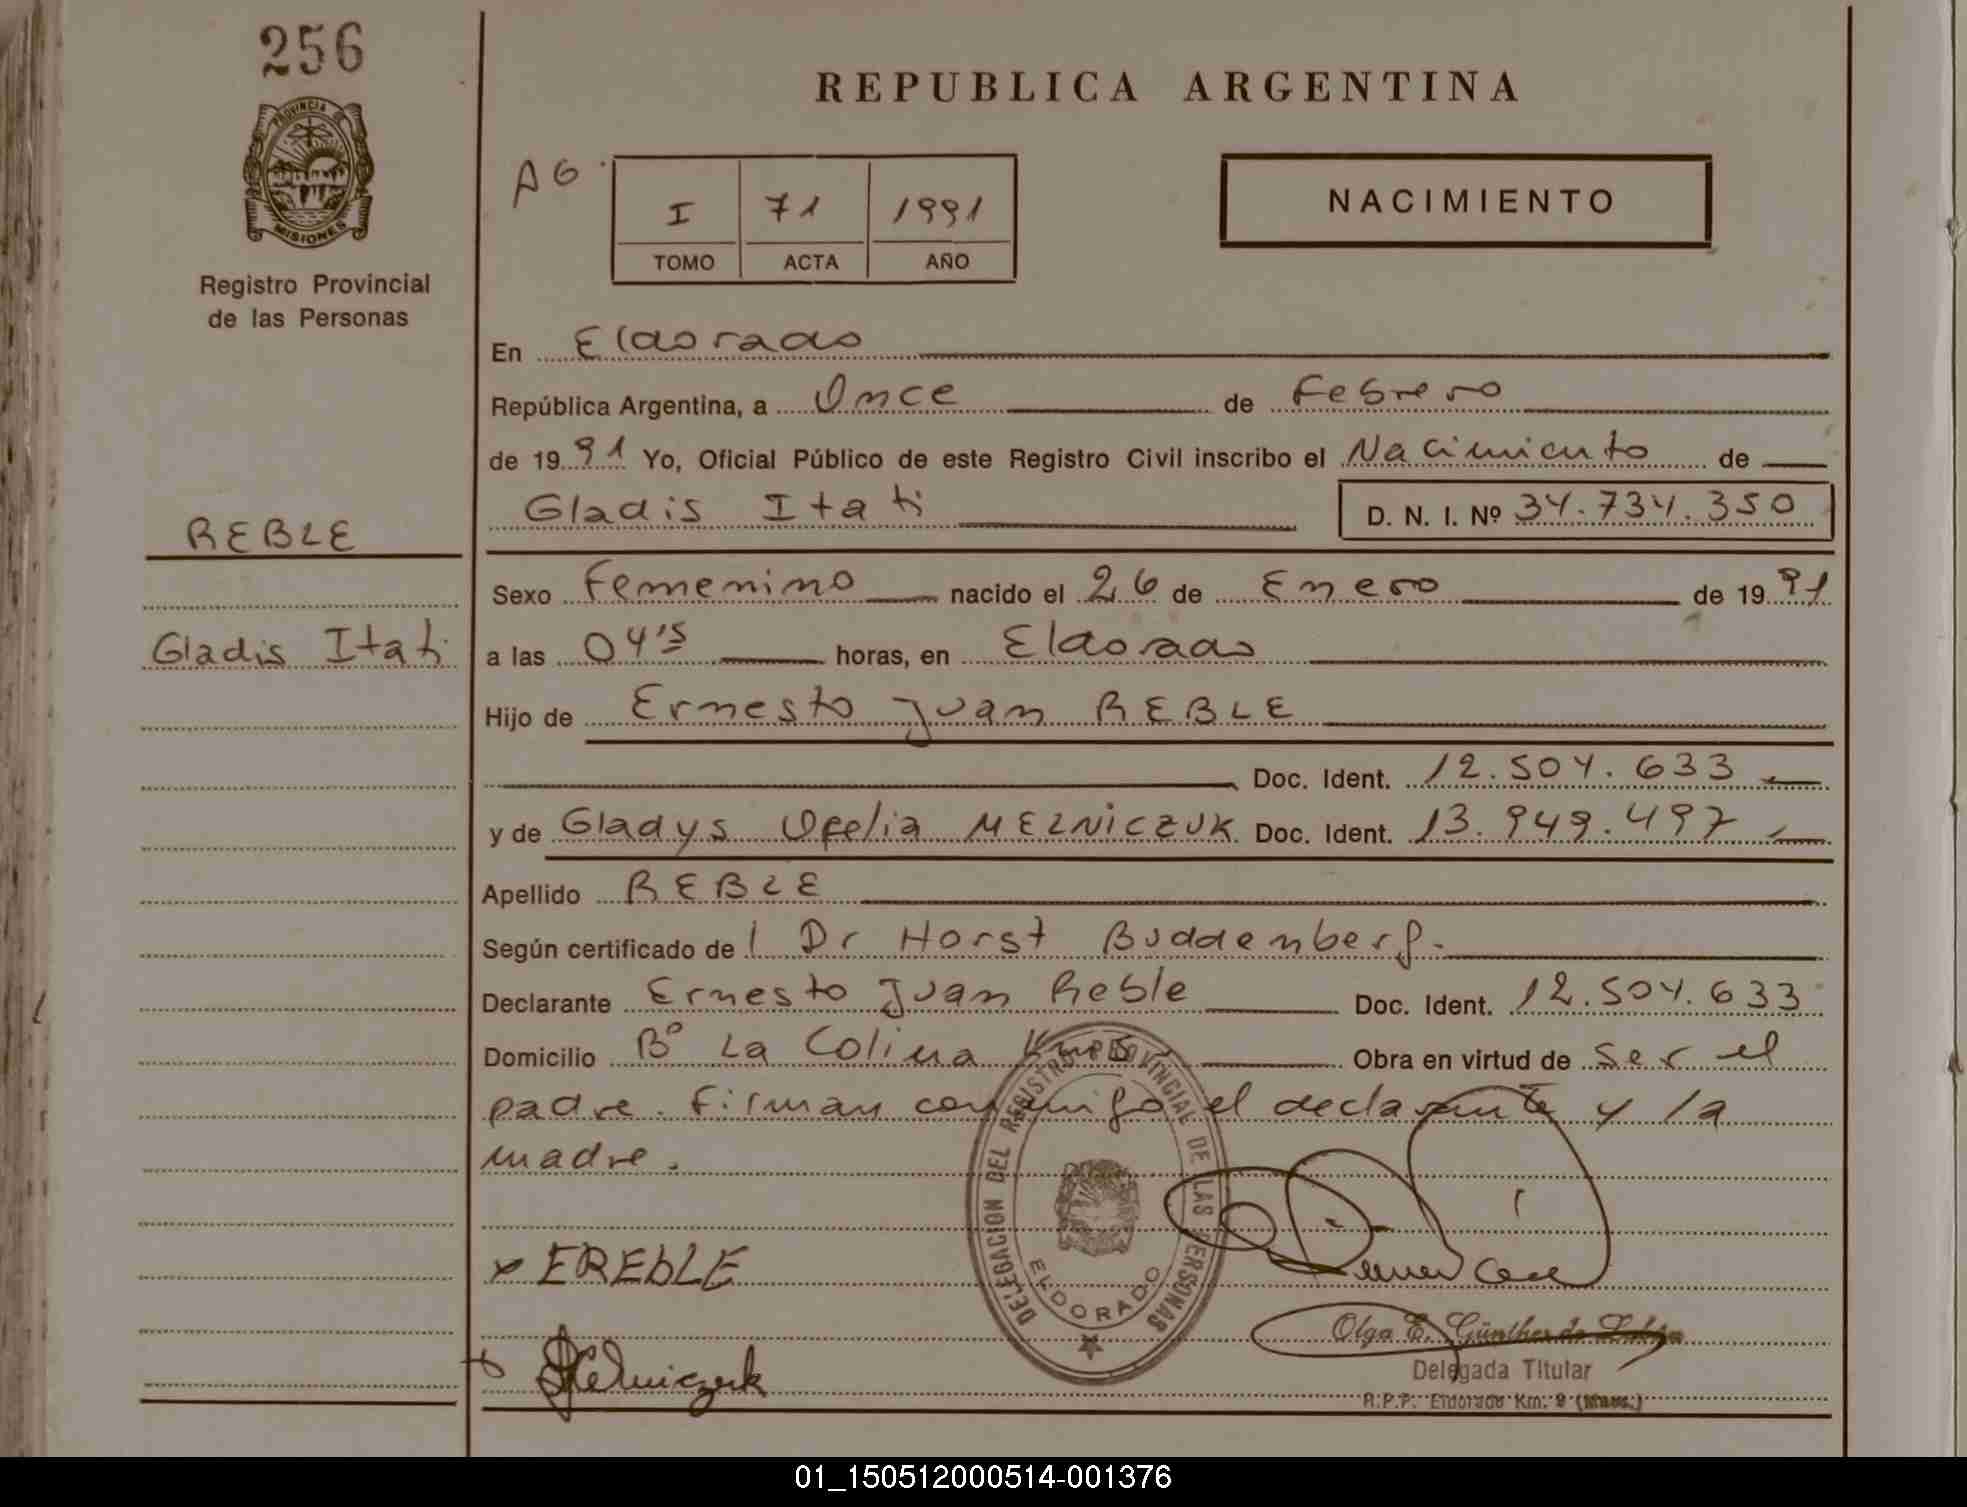 256
PROVINCIA DE
MISIONES
Registro Provincial
de las Personas
REPUBLICA ARGENTINA
AG
I 71 1991
TOMO ACTA AÑO
NACIMIENTO
En Eldorado
República Argentina, a Once de Febrero
de 1991 Yo, Oficial Público de este Registro Civil inscribo el Nacimiento de
Gladis Itati D. N. I. Nº 34.734.350
REBLE
Gladis Itati
Sexo Femenino nacido el 26 de Enero de 1991
a las 04'5 horas, en Eldorado
Hijo de Ernesto Juan REBLE
Doc. Ident. 12.504.633
y de Gladys Ofelia MELNICZUK Doc. Ident. 13.949.497
Apellido REBLE
Según certificado de l Dr Horst Buddenberg.
Declarante Ernesto Juan Reble Doc. Ident. 12.504.633
Domicilio Bº La Colina Obra en virtud de ser el
padre. Firman conmigo el declarante y la
madre.
DELEGACION DEL REGISTRO PROVINCIAL DE LAS PERSONAS
ELDORADO
x EREBLE
Olga E. Günther de
Delegada Titular
R.P.P. Eldorado Km. 9 (Mnes.)
01_150512000514-001376